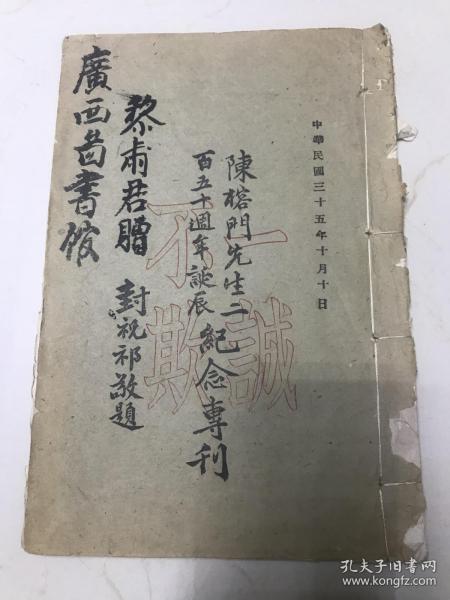 中華民國三十五年十月十日
一誠
不欺
陳榕門先生二
百五十週年誕辰
紀念專刊
封祝祁敬題
黎甫君贈
廣西圖書馆
孔夫子旧书网
www.kongfz.com